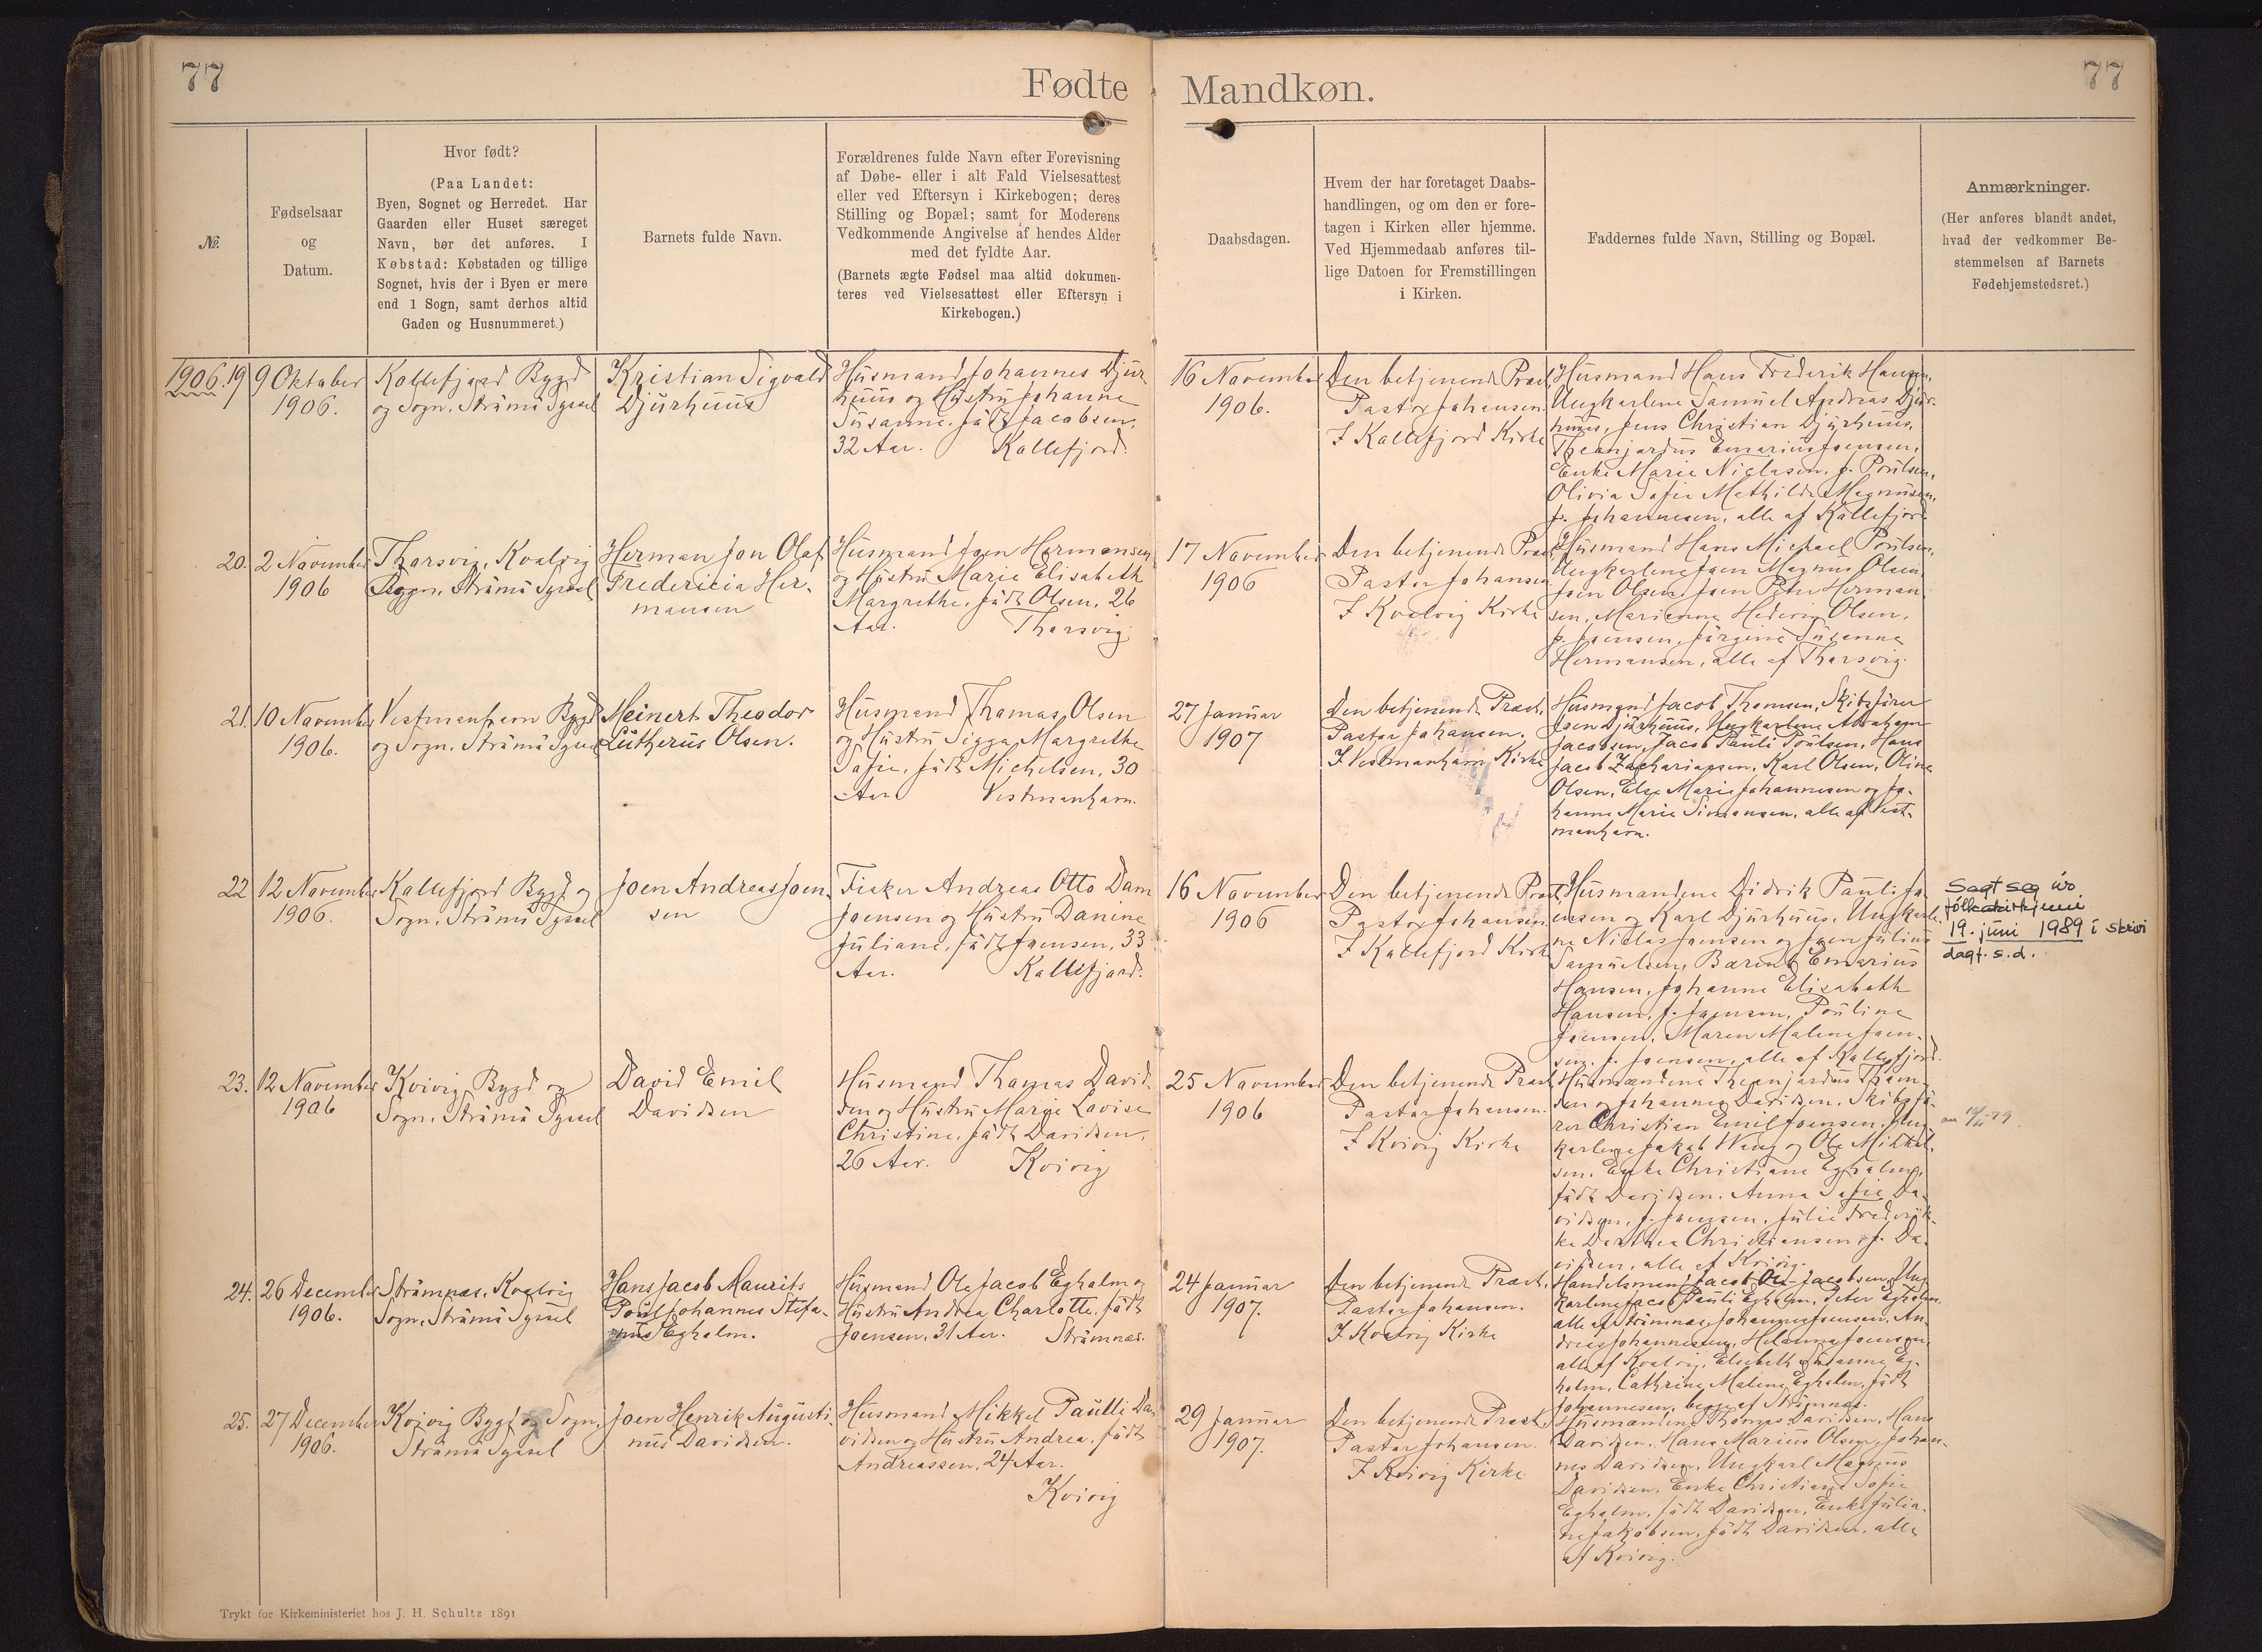 77
Fødte
Mandkøn.
77
№.
Fødselsaar
og
Datum.
Hvor født?
(Paa Landet:
Byen, Sognet og Herredet. Har
Gaarden eller Huset særeget
Navn, bør det anføres. I
Købstad: Købstaden og tillige
Sognet, hvis der i Byen er mere
end 1 Sogn, samt derhos altid
Gaden og Husnummeret.)
Barnets fulde Navn.
Forældrenes fulde Navn efter Forevisning
af Døbe- eller i alt Fald Vielsesattest
eller ved Eftersyn i Kirkebogen; deres
Stilling og Bopæl; samt for Moderens
Vedkommende Angivelse af hendes Alder
med det fyldte Aar.
(Barnets ægte Fødsel maa altid dokumen-
teres ved Vielsesattest eller Eftersyn i
Kirkebogen.)
Daabsdagen.
Hvem der har foretaget Daabs-
handlingen, og om den er fore-
tagen i Kirken eller hjemme.
Ved Hjemmedaab anføres til-
lige Datoen for Fremstillingen
i Kirken.
Faddernes fulde Navn, Stilling og Bopæl.
Anmærkninger.
(Her anføres blandt andet,
hvad der vedkommer Be-
stemmelsen af Barnets
Fødehjemstedsret.)
1906. 19
9 Oktober
1906.
Kollefjord Bygd
og Sogn, Strömö Syssel
Kristian Sigvald
Djurhuus
Husmand Johannes Djur-
huus og Hustru Johanne
Susanne, född Jacobsen,
32 Aar. Kollefjord.
16 November
1906.
Den betjenende Præst,
Pastor Johansen.
I Kollefjord Kirke
Husmand Hans Frederik Hansen,
Ungkarlene Samuel Andreas Djur-
huus, Jens Christian Djurhuus,
Enariüs Joensen,
Enke Marie Niclasen, f. Poulsen,
Olivia Sofie Mathilde Magnusen,
f. Johannesen, alle af Kollefjord
20.
2 November
1906
Thorsvig, Kvalvig
Sogn, Strömö Syssel
Herman Jon Olaf
Fredericia Her-
mansen
Husmand Joen Hermansen
og Hustru Marie Elisabeth
Margrethe, född Olsen, 26
Aar. Thorsvig
17 November
1906
Den betjenende Præst
Pastor Johansen
I Kvalvig Kirke
Husmand Hans Michael Poulsen,
Ungkarlene Joen Magnus Olsen,
Joen Olsen, Joen Peter Herman-
sen, Marianne Hedevig Olsen,
f. Joensen, Jörgine Susanne
Hermansen, alle af Thorsvig.
21.
10 November
1906.
Vestmanhavn Bygd
og Sogn, Strömö Syssel
Meinert Theodor
Lutherus Olsen.
Husmand Thomas Olsen
og Hustru Sigga Margrethe
Sofie, född Michelsen, 30
Aar Vestmanhavn.
27 Januar
1907
Den betjenende Præst,
Pastor Johansen.
I Vestmanhavn Kirke
Husmand Jacob Thomsen, Skibsförer
Joen Djurhuus, Ungkarlene Abraham
Jacobsen, Jacob Pauli Poulsen, Hans
Jacob Zachariasen, Karl Olsen, Oline
Olsen, Else Marie Johannesen og Jo-
hanne Marie Simonsen, alle af Vest-
manhavn.
22
12 November
1906.
Kollefjord Bygd og
Sogn, Strömö Syssel
Joen Andreas Joen-
sen
Fisker Andreas Otto Dam
Joensen og Hustru Danine
Juliane, född Joensen, 33
Aar. Kollefjord.
16 November
1906
Den betjenende Præst,
Pastor Johansen
I Kollefjord Kirke
Husmandene Didrik Pauli Jo-
ensen og Karl Djurhuus, Ungkarle-
ne Niclas Joensen og Joen Julius
Samuelsen, Bærent Enarius
Hansen, Johanne Elisabeth
Hansen, f. Joensen, Pouline
Joensen, Maren Malene Joen-
sen, f. Joensen, alle af Kollefjord.
Sagt seg úr
fólkakirkjuni
19. juni 1989 í skrivi
dagf. s.d.
23.
12 November
1906
Kvivig Bygd og
Sogn, Strömö Syssel
David Emil
Davidsen
Husmand Thomas David-
sen og Hustru Marie Lovise
Christine, född Davidsen,
26 Aar. Kvivig
25 November
1906
Den betjenende Præst,
Pastor Johansen.
I Kvivig Kirke
Husmændene Thom-
sen og Johannes Davidsen, Skibsfö-
rer Christian Emil Joensen, Ung-
karlene Jakob Weng og Ole Mikkel-
sen, Enke Christiane Egholm,
född Davidsen, Anna Sofie Da-
vidsen, f. Joensen, Julie Frederik-
ke Dorthea Christiansen, f. Da-
vidsen, alle af Kvivig.
24.
26 December
1906.
Strömnæs, Kvalvig
Sogn, Strömö Syssel
Hans Jacob Maurits
Poul Johannes Stefa-
nus Egholm.
Husmand Ole Jacob Egholm og
Hustru Andrea Charlotte, född
Joensen, 31 Aar. Strömnæs.
24 Januar
1907.
Den betjenende Præst,
Pastor Johansen.
I Kvalvig Kirke
Handelsmand Jacob Ole Jacobsen, Ung-
karlene Jacob Pauli Egholm, Peter Egholm,
alle af Strömnæs, Johannes Joensen, An-
dreas Johannesen, Joensen,
alle af Kvalvig, Elsebeth Susanne Eg-
holm, Cathrine Malene Egholm, född
Johannesen, begge af Strömnæs.
25.
27 December
1906.
Kvivig Bygd og Sogn,
Strömö Syssel
Joen Henrik Augusti-
nus Davidsen.
Husmand Mikkel Paulli Da-
vidsen og Hustru Andrea, född
Andreassen, 24 Aar.
Kvivig
29 Januar
1907.
Den betjenende Præst,
Pastor Johansen.
I Kvivig Kirke
Husmændene Thomas Davidsen, Hans
Davidsen, Hans Marius Olsen, Johan-
nes Davidsen, Ungkarl Magnus
Davidsen, Enke Christiane Sofie
Egholm, född Davidsen, Enke Julia-
ne Jakobsen, född Davidsen, alle
af Kvivig.
Trykt for Kirkeministeriet hos J. H. Schultz 1891